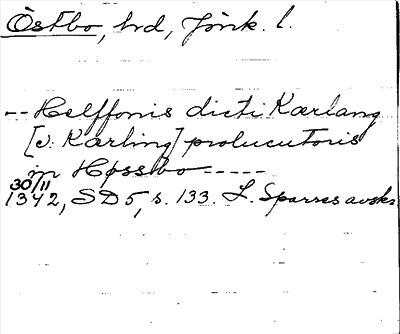 Östbo, hrd, Jönk. l.
-- Helffonis dicti Kærlang
[v. Kærling] prolucutoris
in Høssbo -----
30/11
1342, SD 5, s. 133. L. Sparres avskr.